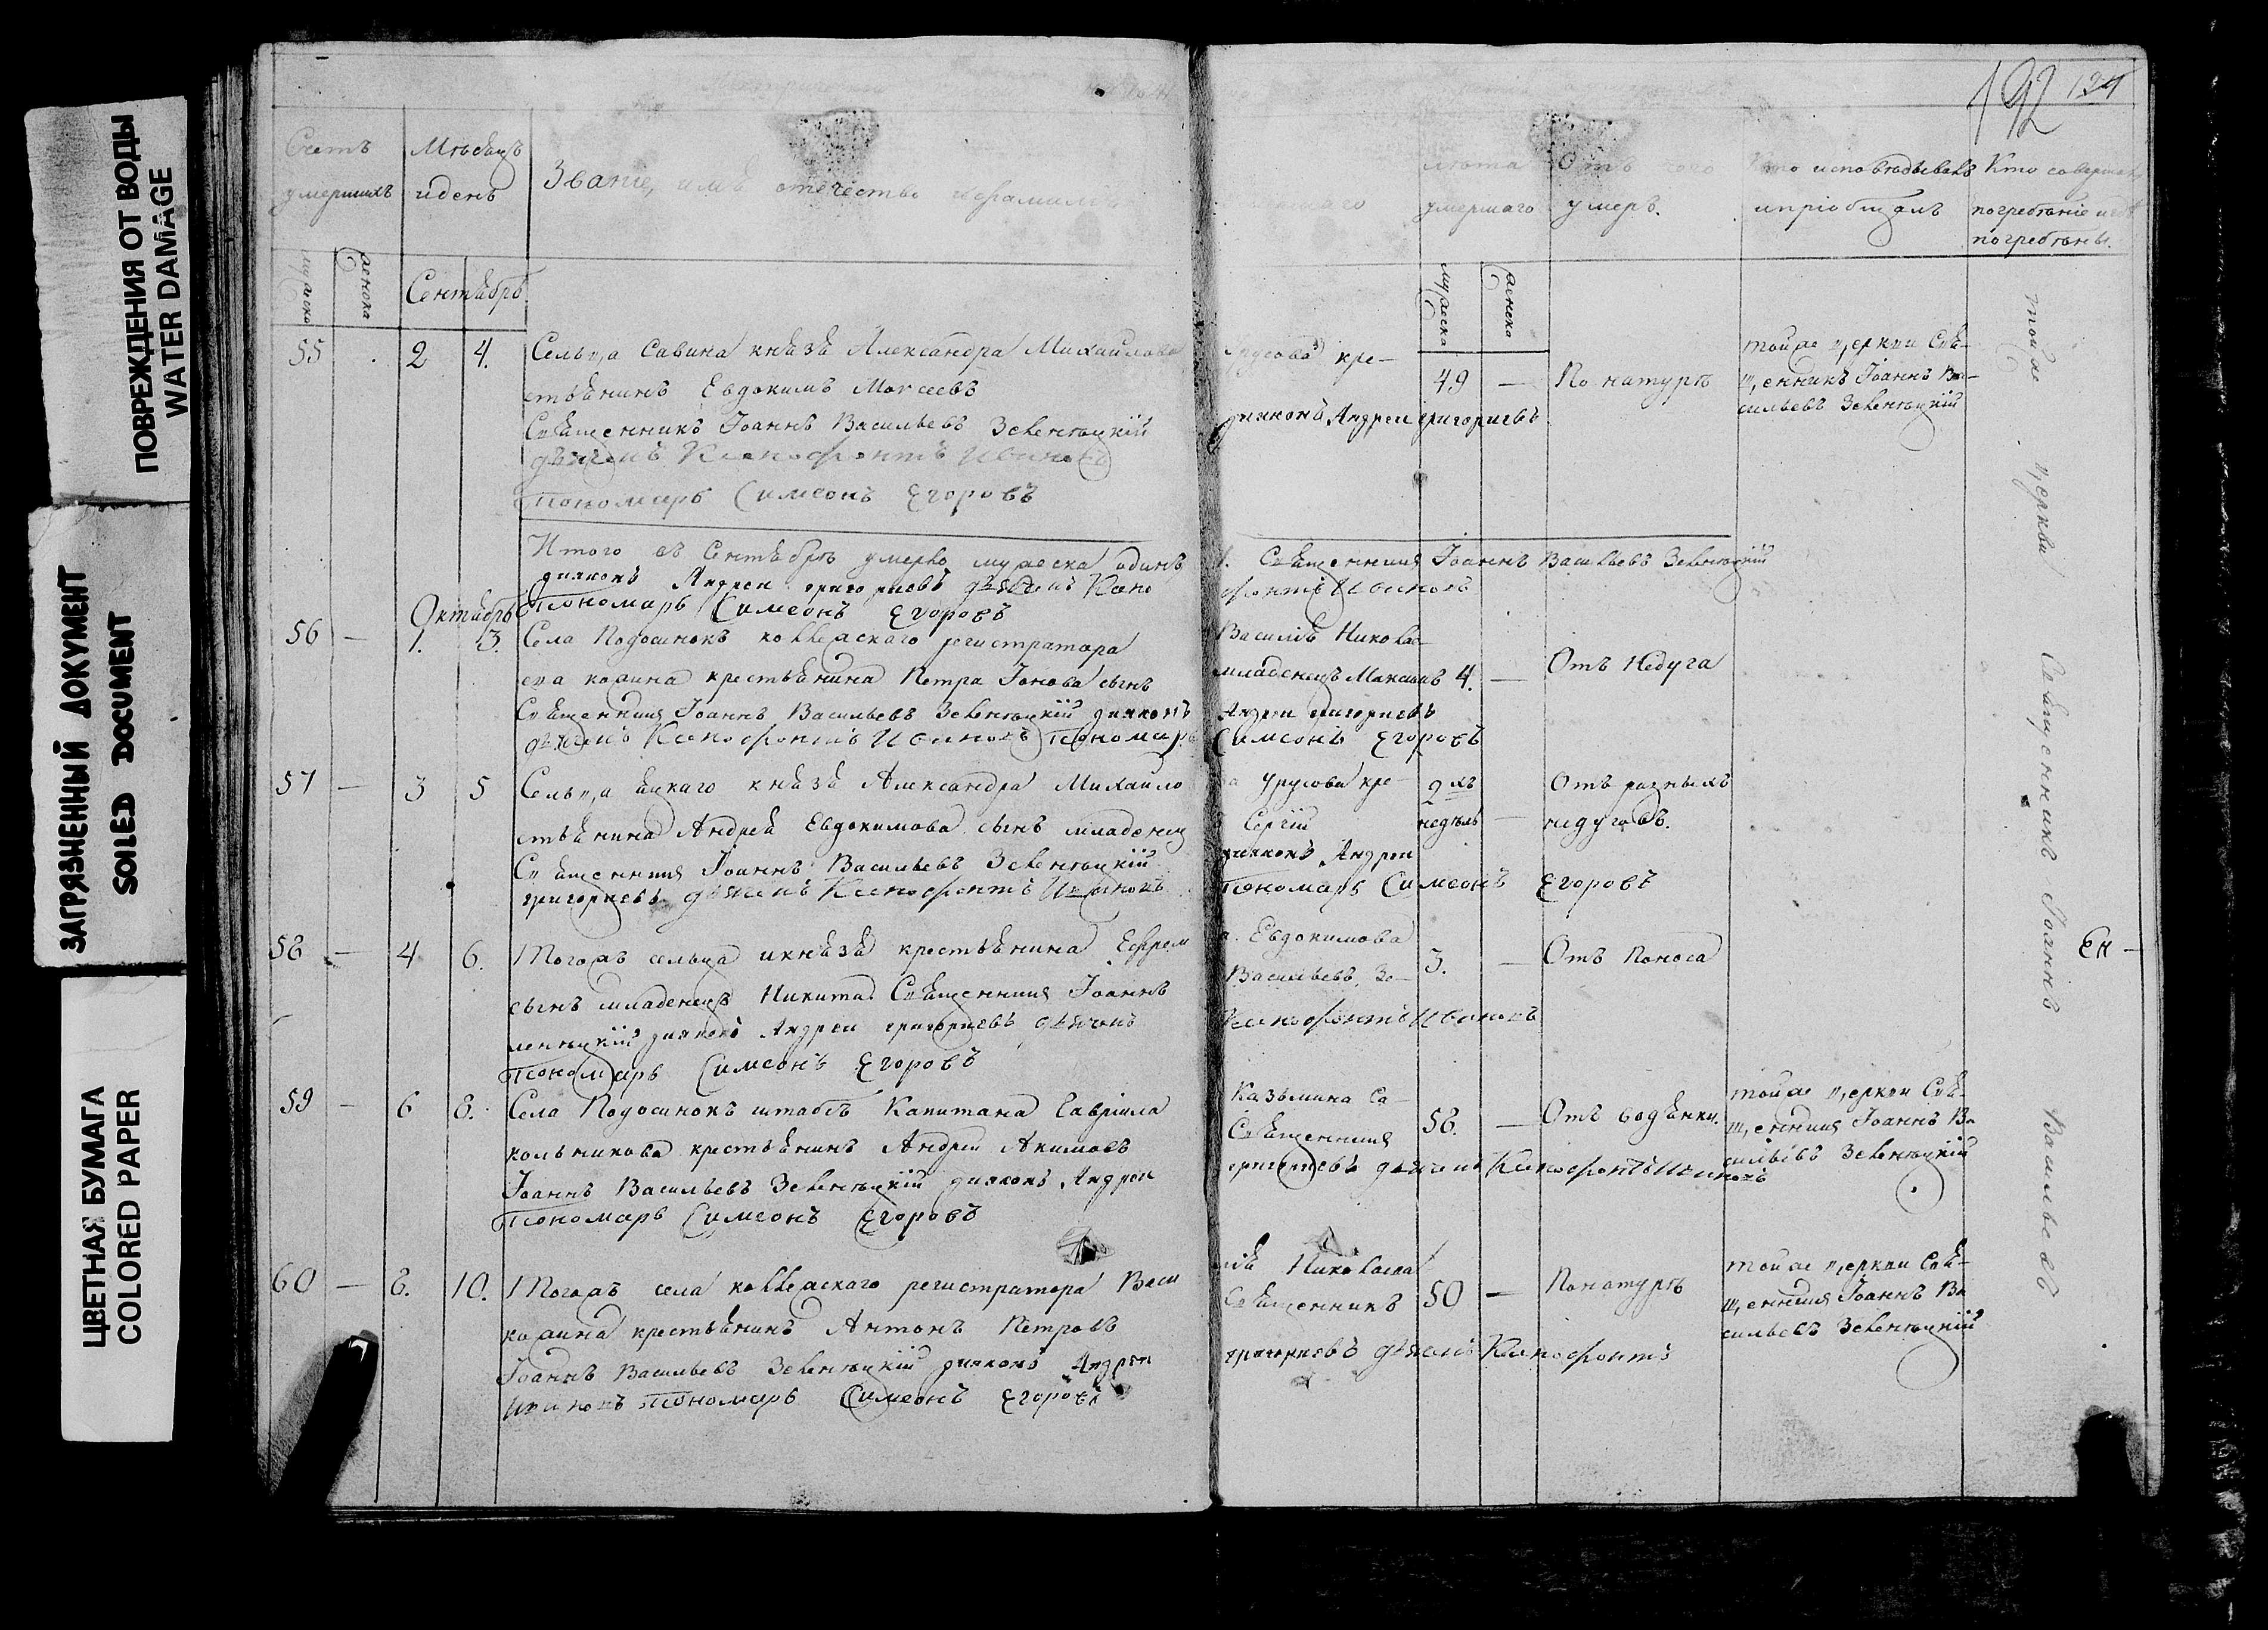 ПОВРЕЖДЕНИЯ ОТ ВОДЫ
WATER DAMAGE
ЗАГРЯЗНЕННЫЙ ДОКУМЕНТ
SOILED DOCUMENT
ЦВЕТНАЯ БУМАГА
COLORED PAPER
192 134
Счетъ умершихъ
Мѣсяцъ идень
Званіе, имя отечество ифамилія
лѣта умершаго
Отъ чего умеръ.
Кто исповѣдывалъ ипріобщалъ
Кто совершалъ погребѣніе
погребѣны.
мужеска
женска
Сентябрь
мужеска
женска
55 . 2 4. Сельца Савина князя Александра Михайлова Урусова кре- 49 — По натурѣ
стьянинъ Евдокимъ Моисеевъ
Священникъ Іоаннъ Васильевъ Зеленецкій диаконъ Андреи григориевъ
дьячекъ Ксенофонтъ Ивановъ
пономарь Симеонъ Егоровъ
тойже церкви Свя-
щенникъ Іоаннъ Ва-
сильевъ Зеленецкій
Итого въ Сентябрѣ умерло мужеска одинъ 1. Священникъ Іоаннъ Васильевъ Зеленецкій
диаконъ Андреи григориевъ дьячекъ Ксено фонтъ Ивановъ
пономарь Симеонъ Егоровъ
Октябрь
56 — 1. 3. Села Подосинокъ коллежскаго регистратора Василія Николае-
ева кожина крестьянина Петра Іонова сынъ младенецъ Максимъ 4. — Отъ Недуга
Священникъ Іоаннъ Васильевъ Зеленецкій диаконъ Андреи григориевъ
дьячекъ Ксенофонтъ Ивановъ пономарь Симеонъ Егоровъ
57 — 3 5 Сельца князя Александра Михаило ва Урусова кре- 9хъ недѣль — Отъ разныхъ недуговъ.
стьянина Андрея Евдокимова сынъ младенецъ Сергій
Священникъ Іоаннъ Васильевъ Зеленецкій диаконъ Андреи
григориевъ дьячекъ Ксенофонтъ Ивановъ пономарь Симеонъ Егоровъ
58 — 4 6. Тогожъ сельца икнязя крестьянина Ефрема Евдокимова 3. — Отъ Поноса
сынъ младенецъ Никита. Священникъ Іоаннъ Васильевъ Зе-
ленецкій диаконъ Андреи григориевъ дьячекъ Ксенофонтъ Ивановъ
пономарь Симеонъ Егоровъ
59 — 6 8. Села Подосинокъ штабсъ Капитана Гавріила Казьмина Со- 58. — Отъ водянки.
кольникова крестьянинъ Андреи Акимовъ Священникъ
Іоаннъ Васильевъ Зеленецкій диаконъ Андреи григориевъ дьячекъ Ксенофонтъ Ивановъ
пономарь Симеонъ Егоровъ
тойже церкви Свя-
щенникъ Іоаннъ Ва-
сильевъ Зеленецкій
60 — 8. 10. Тогожъ села коллежскаго регистратора Васи лія Николаева 50 — По натурѣ
кожина крестьянинъ Антонъ Петровъ Священникъ
Іоаннъ Васильевъ Зеленецкій диаконъ Андреи григориевъ дьячекъ Ксенофонтъ
Ивановъ пономарь Симеонъ Егоровъ
тойже церкви Свя-
щенникъ Іоаннъ Ва
сильевъ Зеленецкій
тойже церкви Священникъ Іоаннъ Васильевъ